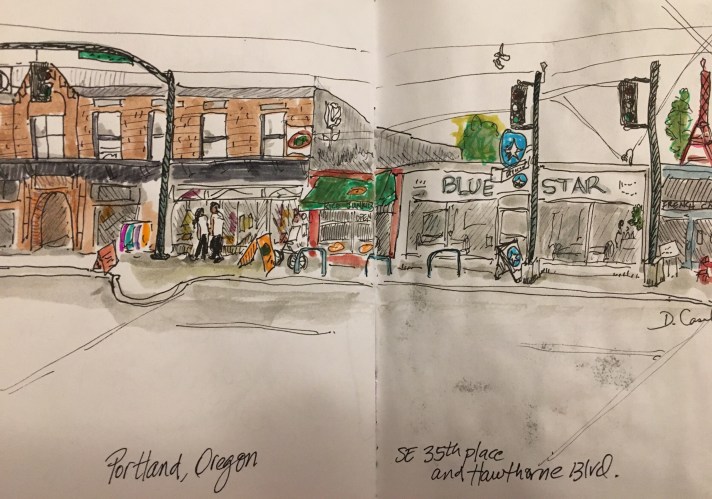 BLUE STAR
D. Cas
Portland, Oregon
SE 35th place
and Hawthorne Blvd.